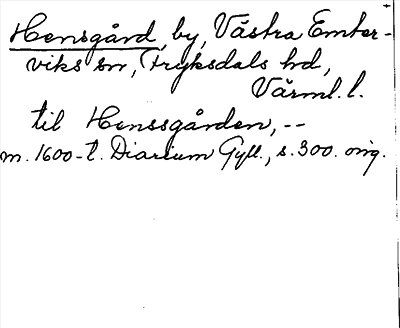 Hensgård, by, Västra Emter-
viks sn, Fryksdals hd,
Värml. l.
til Henssgården, --
m. 1600-t. Diarium Gyll., s. 300. orig.